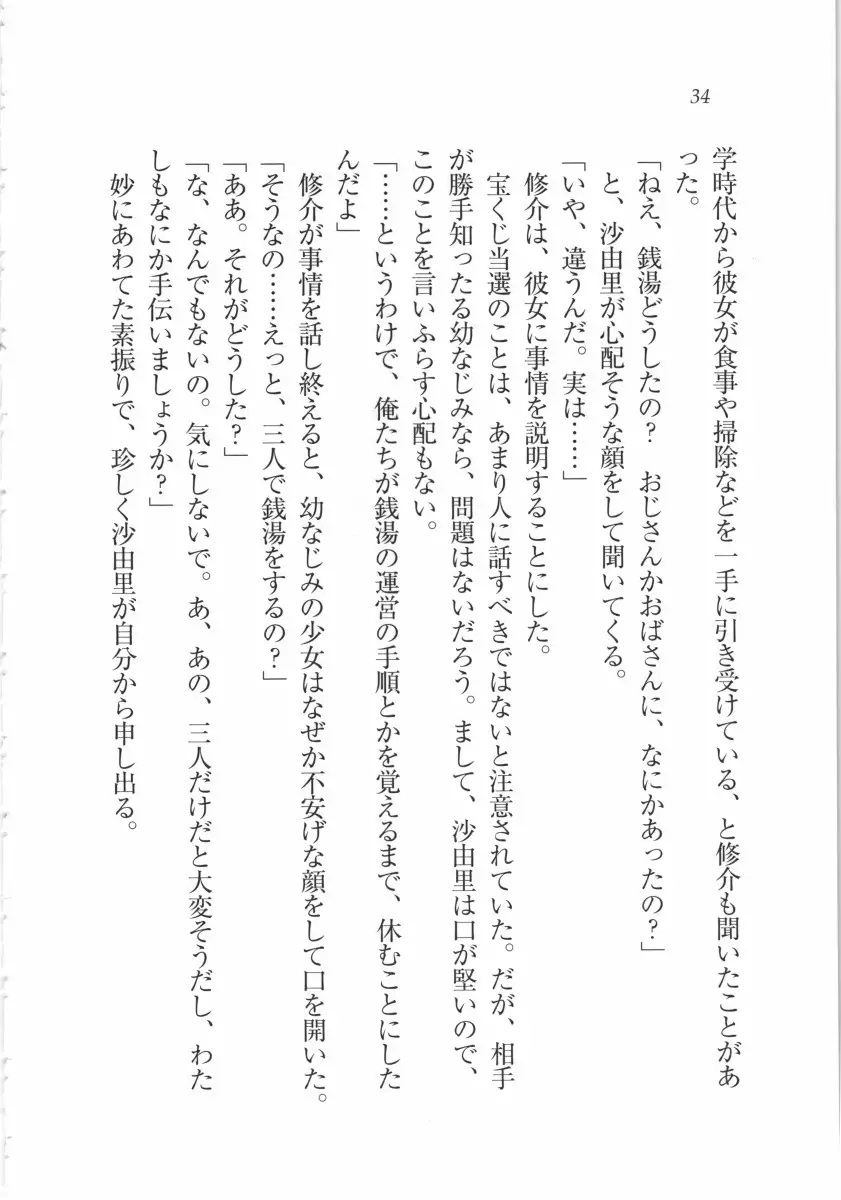 34
学時代から彼女が食事や掃除などを一手に引き受けている、と修介も聞いたことがあ
った。
「ねえ、銭湯どうしたの?　おじさんかおばさんに、なにかあったの?」
と、沙由里が心配そうな顔をして聞いてくる。
「いや、違うんだ。実は……」
修介は、彼女に事情を説明することにした。
宝くじ当選のことは、あまり人に話すべきではないと注意されていた。だが、相手
が勝手知ったる幼なじみなら、問題はないだろう。まして、沙由里は口が堅いので、
このことを言いふらす心配もない。
「……というわけで、俺たちが銭湯の運営の手順とかを覚えるまで、休むことにした
んだよ」
修介が事情を話し終えると、幼なじみの少女はなぜか不安げな顔をして口を開いた。
「そうなの……えっと、三人で銭湯をするの?」
「ああ。それがどうした?」
「な、なんでもないの。気にしないで。あ、あの、三人だけだと大変そうだし、わた
しもなにか手伝いましょうか?」
妙にあわてた素振りで、珍しく沙由里が自分から申し出る。